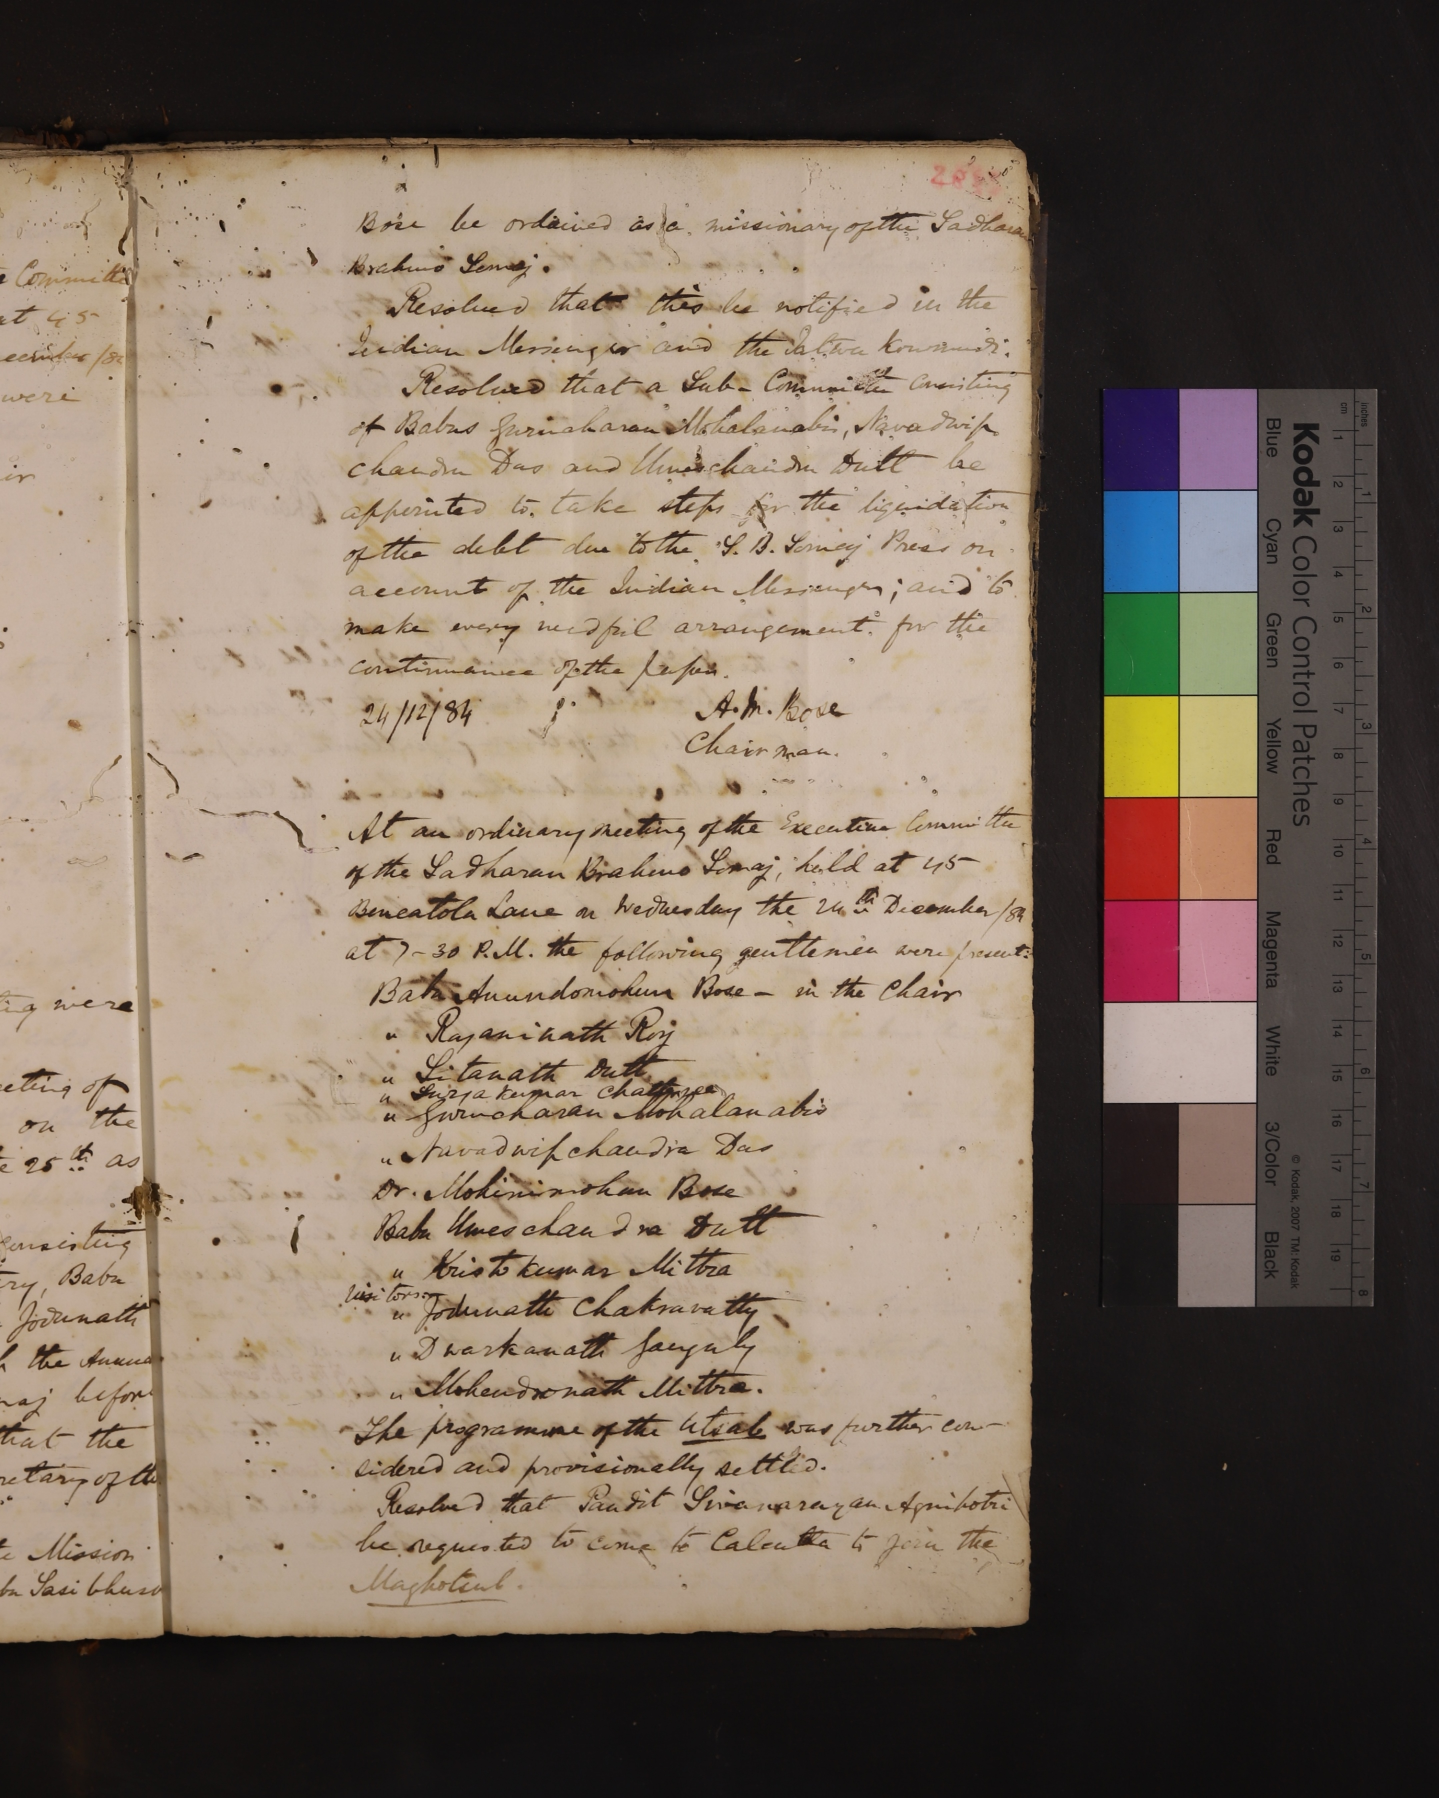 e Committe
at 45
ecember/84
were
ir
ting were
eeting of
on the
e 25th as
consisting
ry, Babu
Jodunath
h the Annua
maj befor
that the
retary of the
te Mission
bu Sasibhus
Bose be ordained as a missionary of the Sadharan
Brahmo Somaj.
Resolved that this be notified in the
Indian Messenger and the Tatwa Kowmudi.
Resolved that a Sub-Committee consisting
of Babus Gurucharan Mohalanabis, Navadwip
chandra Das and Umeschandra Dutt be
appointed to take steps for the liquidation
of the debt due to the S. B. Somaj Press on
account of the Indian Messenger; and to
make every needful arrangement for the
continuance of the paper.
24/12/84 A. M. Bose
Chairman.
At an ordinary meeting of the Executive Committee
of the Sadharan Brahmo Somaj, held at 45
Beneatola Lane on Wednesday the 24th December/84
at 7-30 P.M. the following gentlemen were present:
Babu Anundomohun Bose - in the Chair
" Rajaninath Roy
" Sitanath Dutt
" Surja Kumar Chatterjee
" Gurucharan Mohalanabis
" Navadwipchandra Das
Dr. Mohinimohun Bose
Babu Umeschandra Dutt
" Kristokumar Mittra
Visitors
" Jodunath Chakravatty
" Dwarkanath Ganguly
" Mohendronath Mittra.
The programme of the Utsab was further con-
sidered and provisionally settled.
Resolved that Pandit Sivanarayan Agnihotri
be requested to come to Calcutta to join the
Maghotsub.
Kodak Color Control Patches
© Kodak, 2007 TM: Kodak
Blue Cyan Green Yellow Red Magenta White 3/Color Black
inches 1 2 3 4 5 6 7 8
cm 1 2 3 4 5 6 7 8 9 10 11 12 13 14 15 16 17 18 19